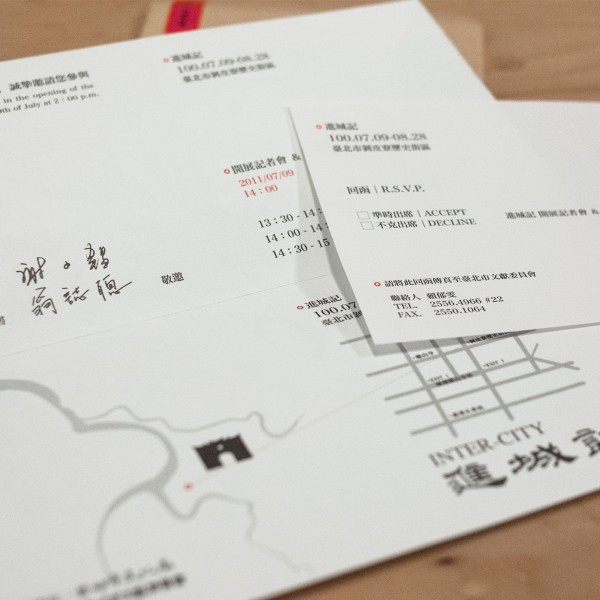 誠摯邀請您參與
in the opening of the
th of July at 2 : 00 p.m.
進城記
100.07.09-08.28
臺北市剝皮寮歷史街區
開展記者會 &
2011/07/09
14 : 00
13 : 30 - 14 :
14 : 00 - 14 :
14 : 30 - 15
敬邀
進城記
100.07.09-08.28
臺北市剝皮寮歷史街區
回函 | R.S.V.P.
準時出席 | ACCEPT
不克出席 | DECLINE
進城記 開展記者會 &
請將此回函傳真至臺北市文獻委員會
聯絡人 賴郁雯
TEL. 2556.4966 #22
FAX. 2550.1064
進城記
100.07
臺北市剝皮寮
EXIT 1
INTER-CITY
進城記